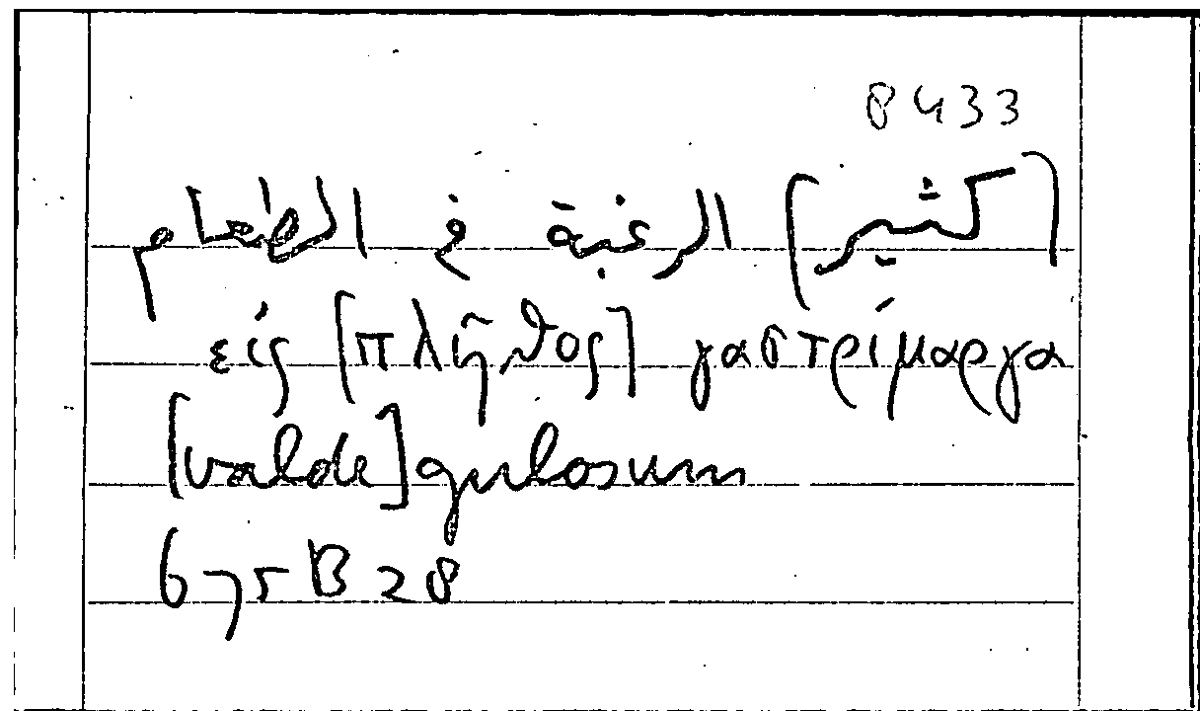 8433
[كثير] الرغبة في الطعام
εἰς [πλῆθος] γαστρίμαργα
[valde] gulosum
675 B 28